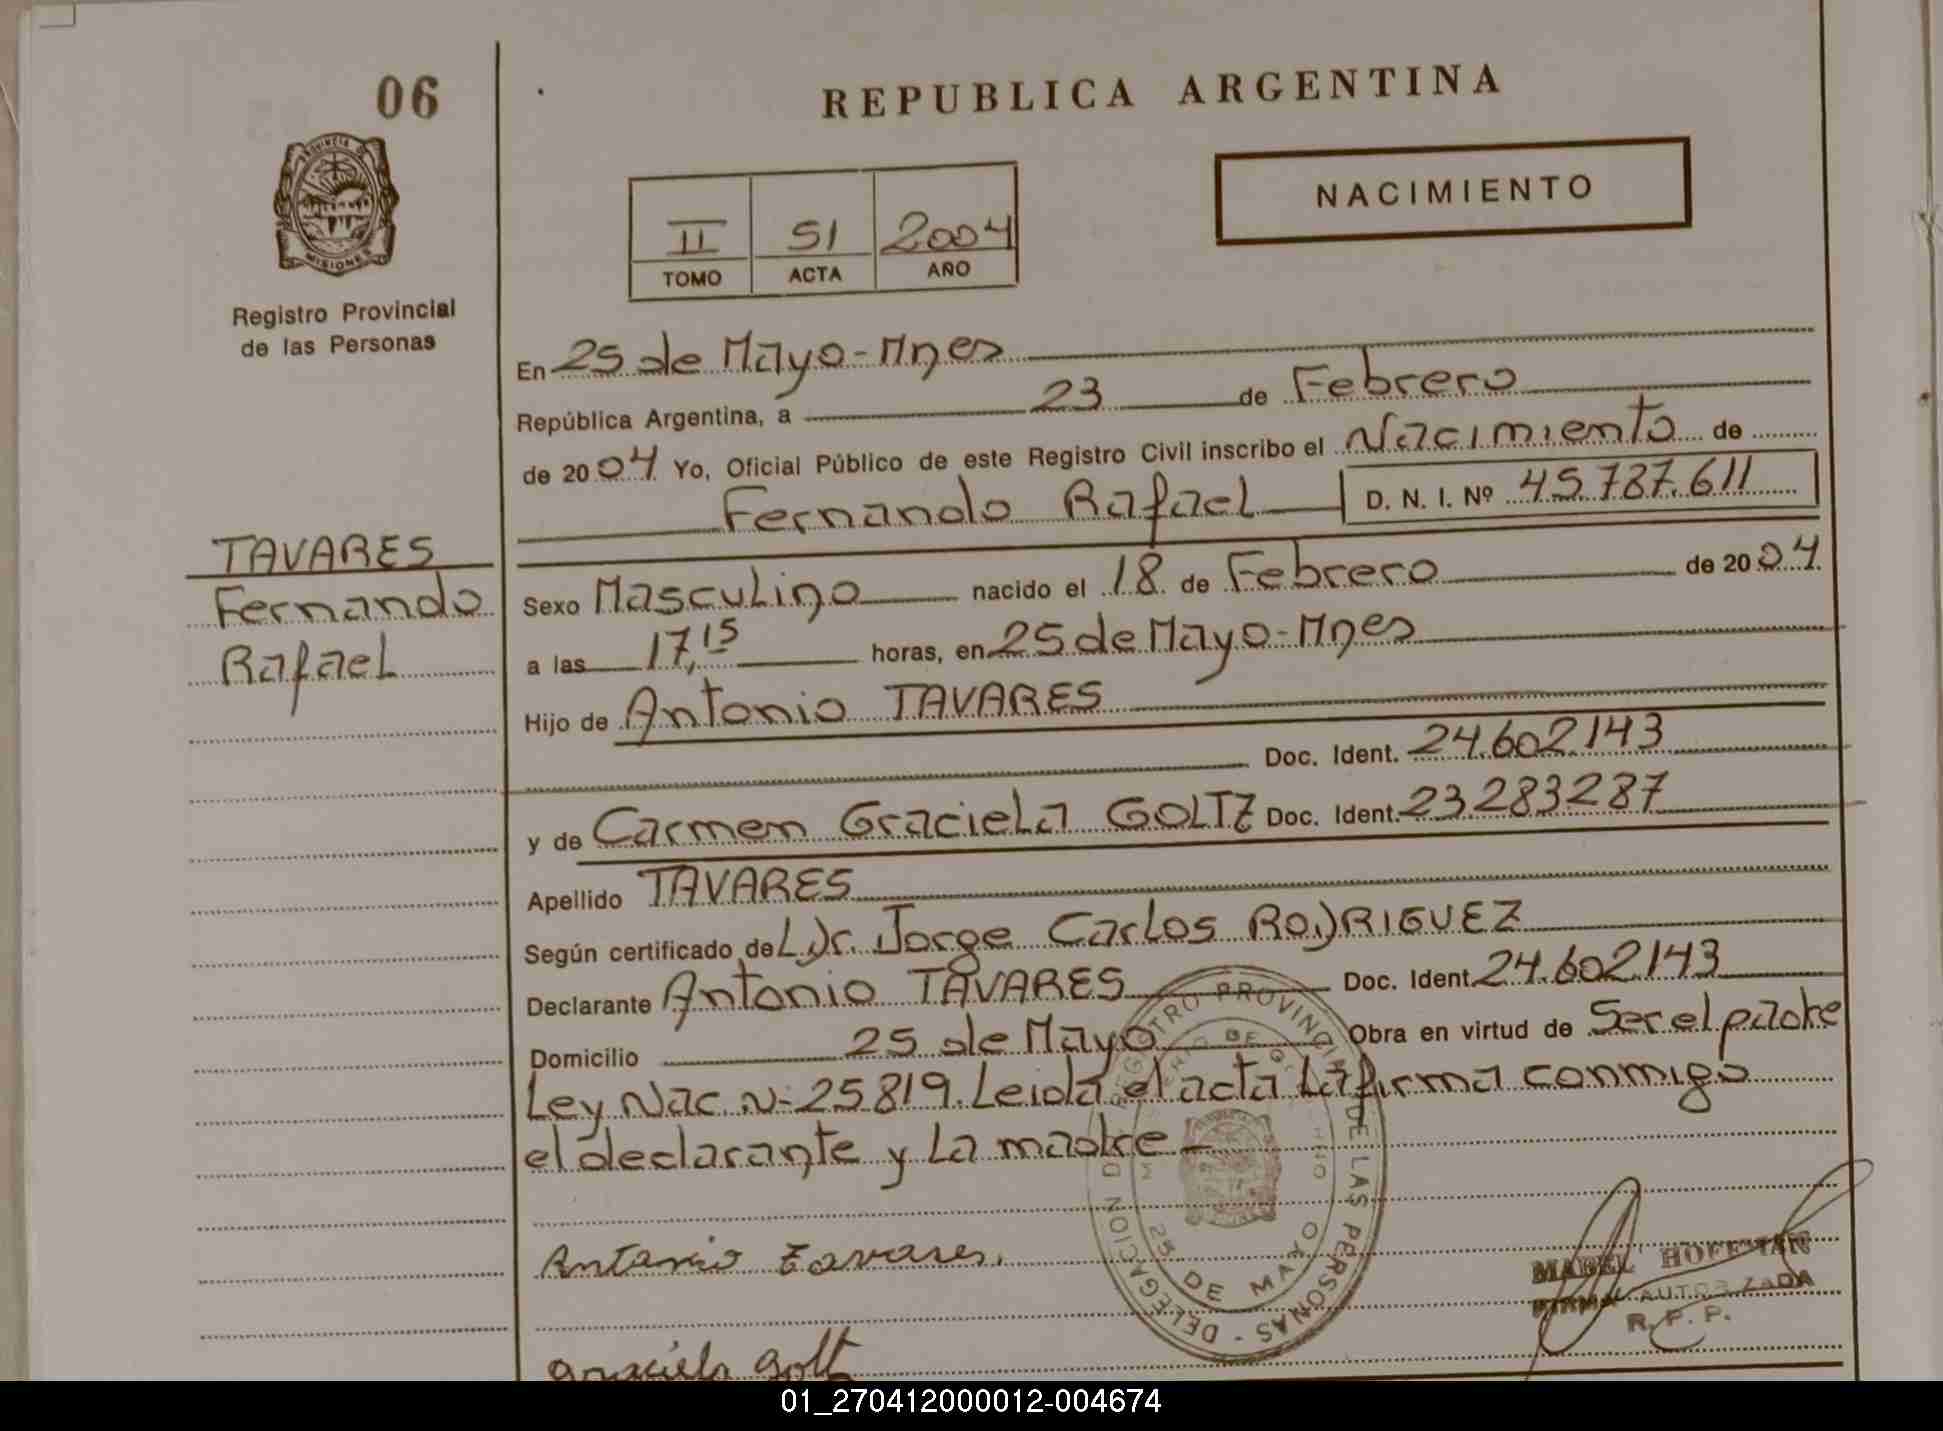 06
REPUBLICA ARGENTINA
PROVINCIA DE
MISIONES
Registro Provincial
de las Personas
II 51 2004
TOMO ACTA AÑO
NACIMIENTO
En 25 de Mayo-Mnes
República Argentina, a 23 de Febrero
de 2004 Yo, Oficial Público de este Registro Civil inscribo el Nacimiento de
Fernando Rafael D. N. I. Nº 45.787.611
TAVARES
Fernando
Rafael
Sexo Masculino nacido el 18 de Febrero de 2004
a las 17,15 horas, en 25 de Mayo-Mnes
Hijo de Antonio TAVARES
Doc. Ident. 24.602.143
y de Carmen Graciela GOLTZ Doc. Ident. 23.283.287
Apellido TAVARES
Según certificado de Dr. Jorge Carlos RODRIGUEZ
Declarante Antonio TAVARES Doc. Ident. 24.602.143
Domicilio 25 de Mayo Obra en virtud de Ser el padre
Ley Nac. N- 25.819. Leida el acta La firma conmigo
el declarante y La madre
REGISTRO PROVINCIAL DE LAS PERSONAS - DELEGACION
25 DE MAYO
Antonio Tavares.
MABEL HOFFMAN
FIRMA AUTORIZADA
R. P. P.
Graciela Golt
01_270412000012-004674